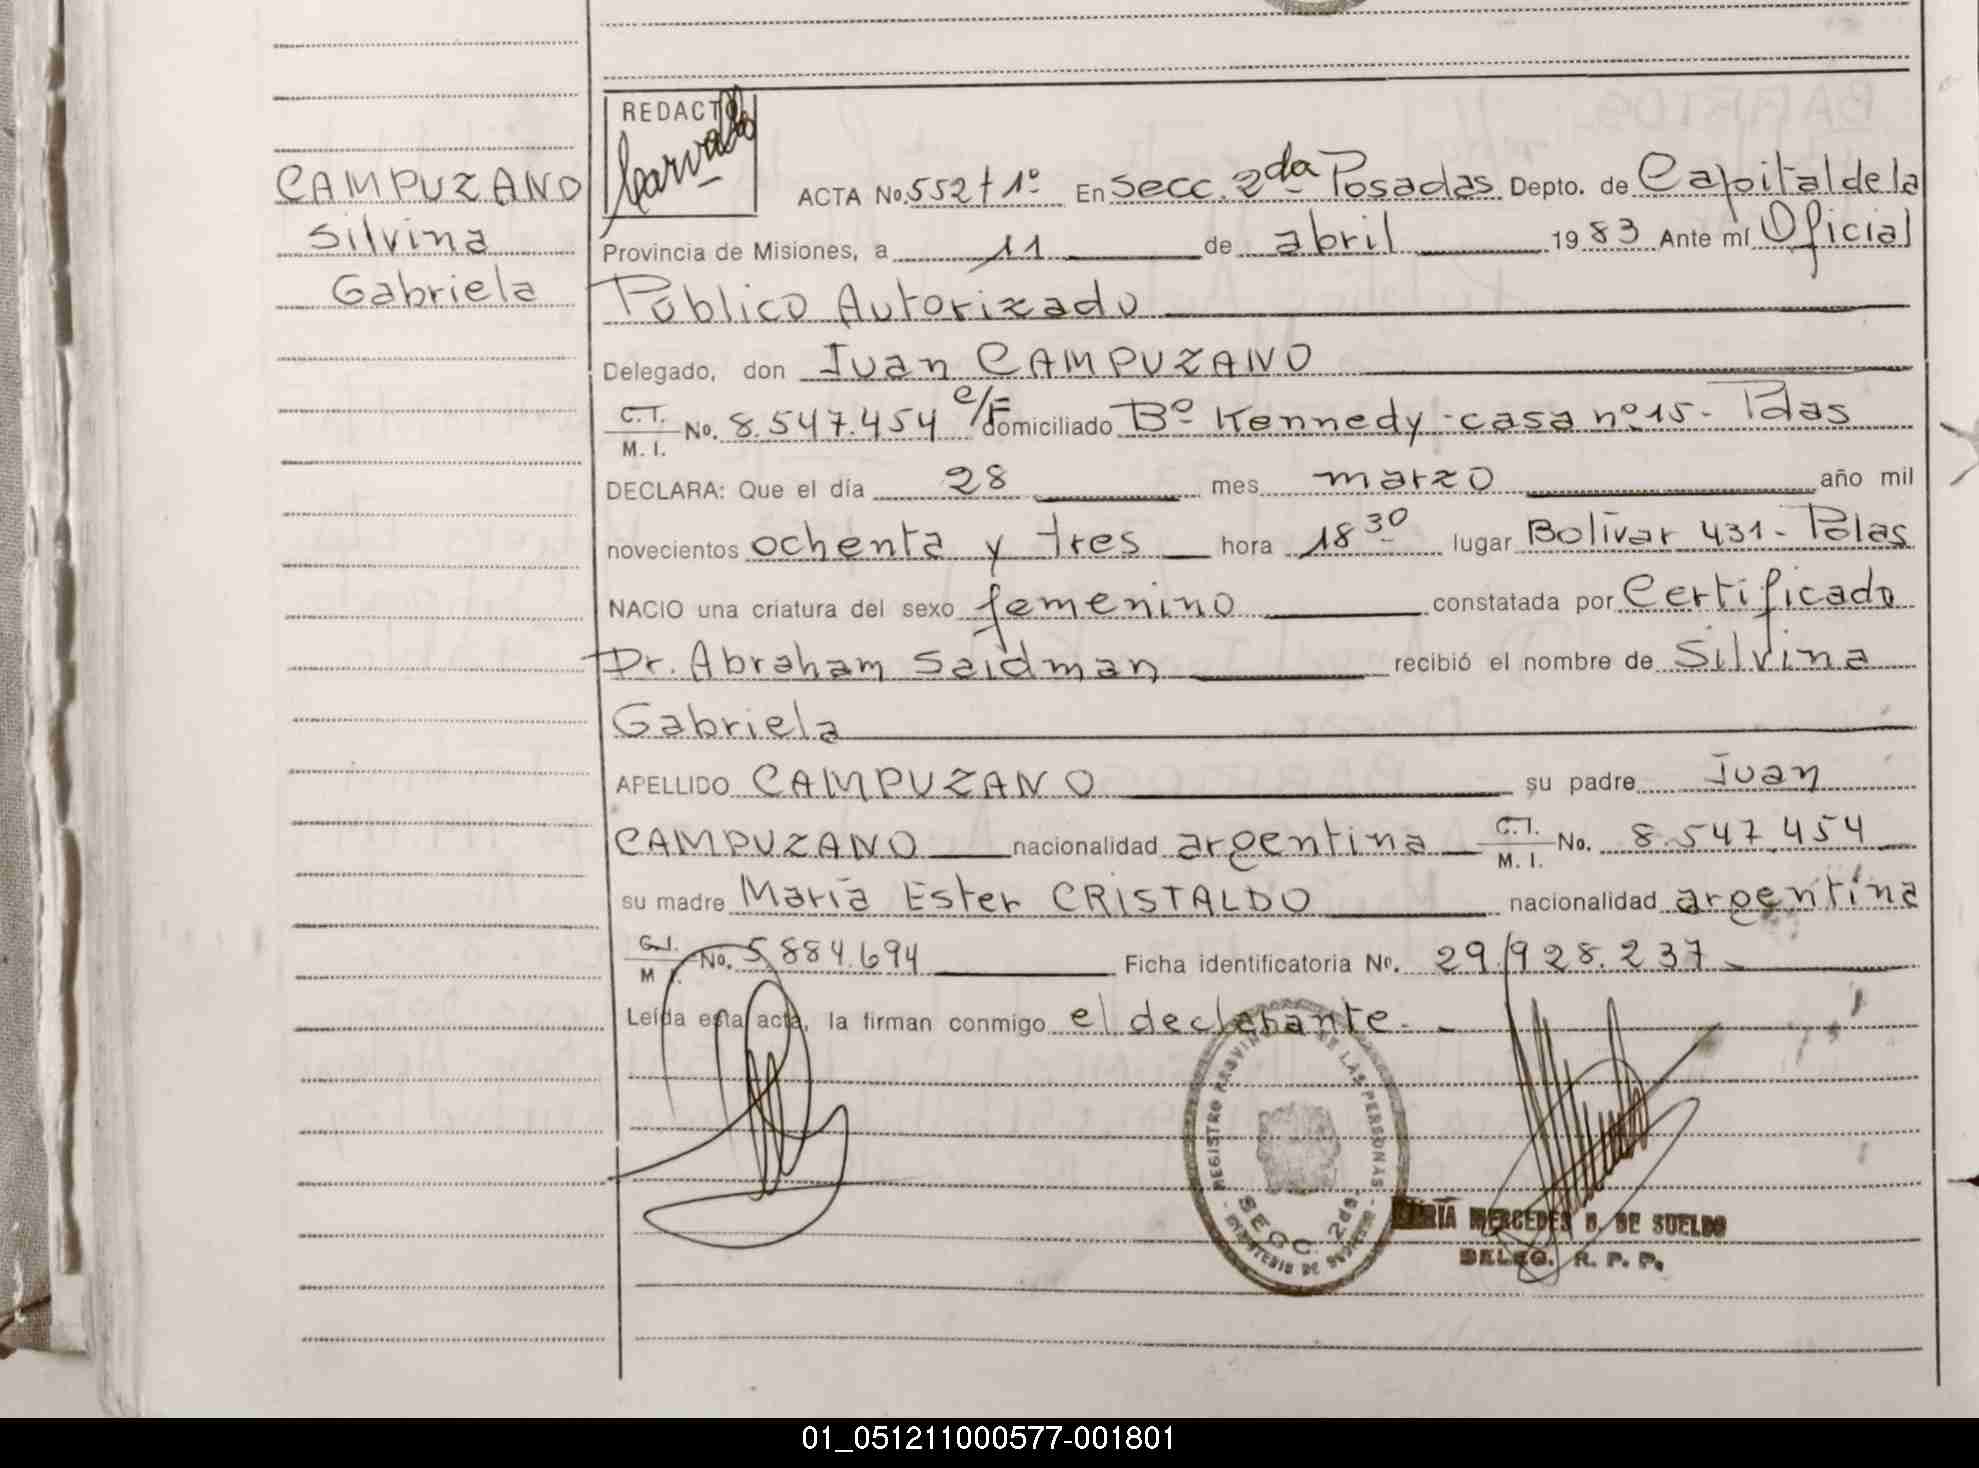 CAMPUZANO
Silvina
Gabriela
REDACTO
Carvallo
ACTA No. 552 t 1º En Secc. 2da Posadas Depto. de Capital de la
Provincia de Misiones, a 11 de abril 1983 Ante mí Oficial
Público Autorizado
Delegado, don Juan CAMPUZANO
C.I.
M. I. No. 8.547.454 e/F domiciliado Bº Kennedy - casa nº 15 - Pdas
DECLARA: Que el día 28 mes marzo año mil
novecientos ochenta y tres hora 18 30 lugar Bolívar 431 - Pdas
NACIO una criatura del sexo femenino constatada por Certificado
Dr. Abraham Saidman recibió el nombre de Silvina
Gabriela
APELLIDO CAMPUZANO su padre Juan
CAMPUZANO nacionalidad argentina C.I.
M. I. No. 8.547.454
su madre María Ester CRISTALDO nacionalidad argentina
C.I.
M. I. No. 5.884.694 Ficha identificatoria No. 29.928.237
Leída esta acta, la firman conmigo el declarante.
REGISTRO PROVINCIAL DE LAS PERSONAS
SECC. 2da
MINISTERIO DE GOBIERNO
MARÍA MERCEDES D. DE SUELDO
DELEG. R. P. P.
01_051211000577-001801